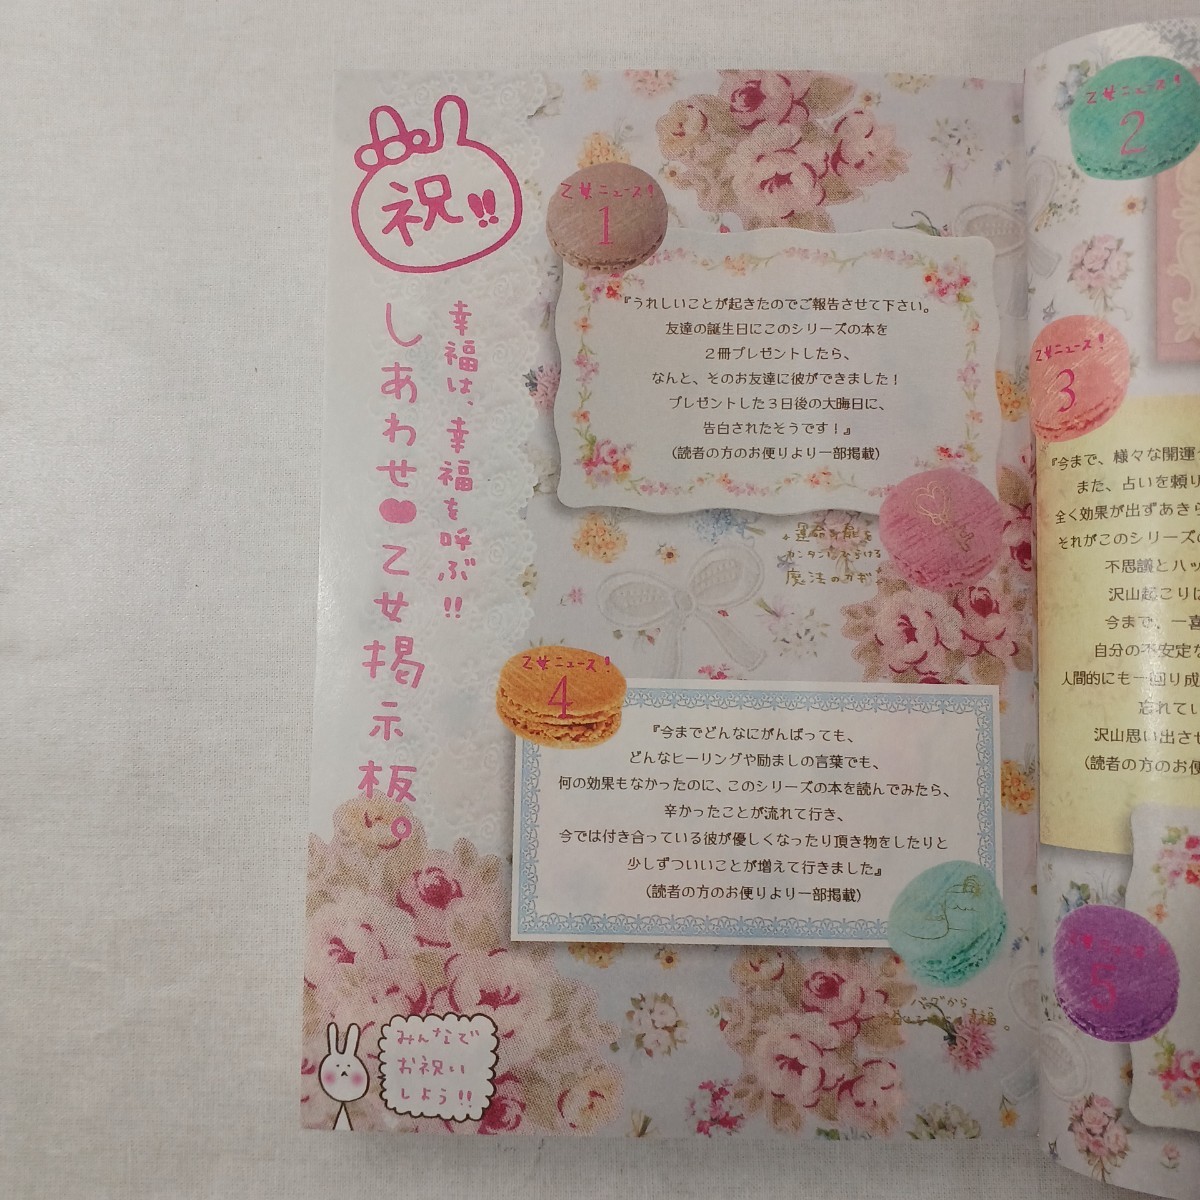 祝!!
幸福は、幸福を呼ぶ!!
しあわせ♥乙女掲示板。
乙女ニュース!
1
『うれしいことが起きたのでご報告させて下さい。
友達の誕生日にこのシリーズの本を
２冊プレゼントしたら、
なんと、そのお友達に彼ができました！
プレゼントした３日後の大晦日に、
告白されたそうです！』
（読者の方のお便りより一部掲載）
魔法のカギ
乙女ニュース!
4
『今までどんなにがんばっても、
どんなヒーリングや励ましの言葉でも、
何の効果もなかったのに、このシリーズの本を読んでみたら、
辛かったことが流れて行き、
今では付き合っている彼が優しくなったり頂き物をしたりと
少しずついいことが増えて行きました』
（読者の方のお便りより一部掲載）
みんなで
お祝い
しよう!!
乙女ニュース!
2
乙女ニュース!
3
『今まで、様々な開運
また、占いを頼り
全く効果が出ずあきら
それがこのシリーズの
不思議とハッ
沢山起こりに
今まで、一喜
自分の不安定な
人間的にも一回り成
忘れてい
沢山思い出させ
（読者の方のお便
乙女ニュース!
5